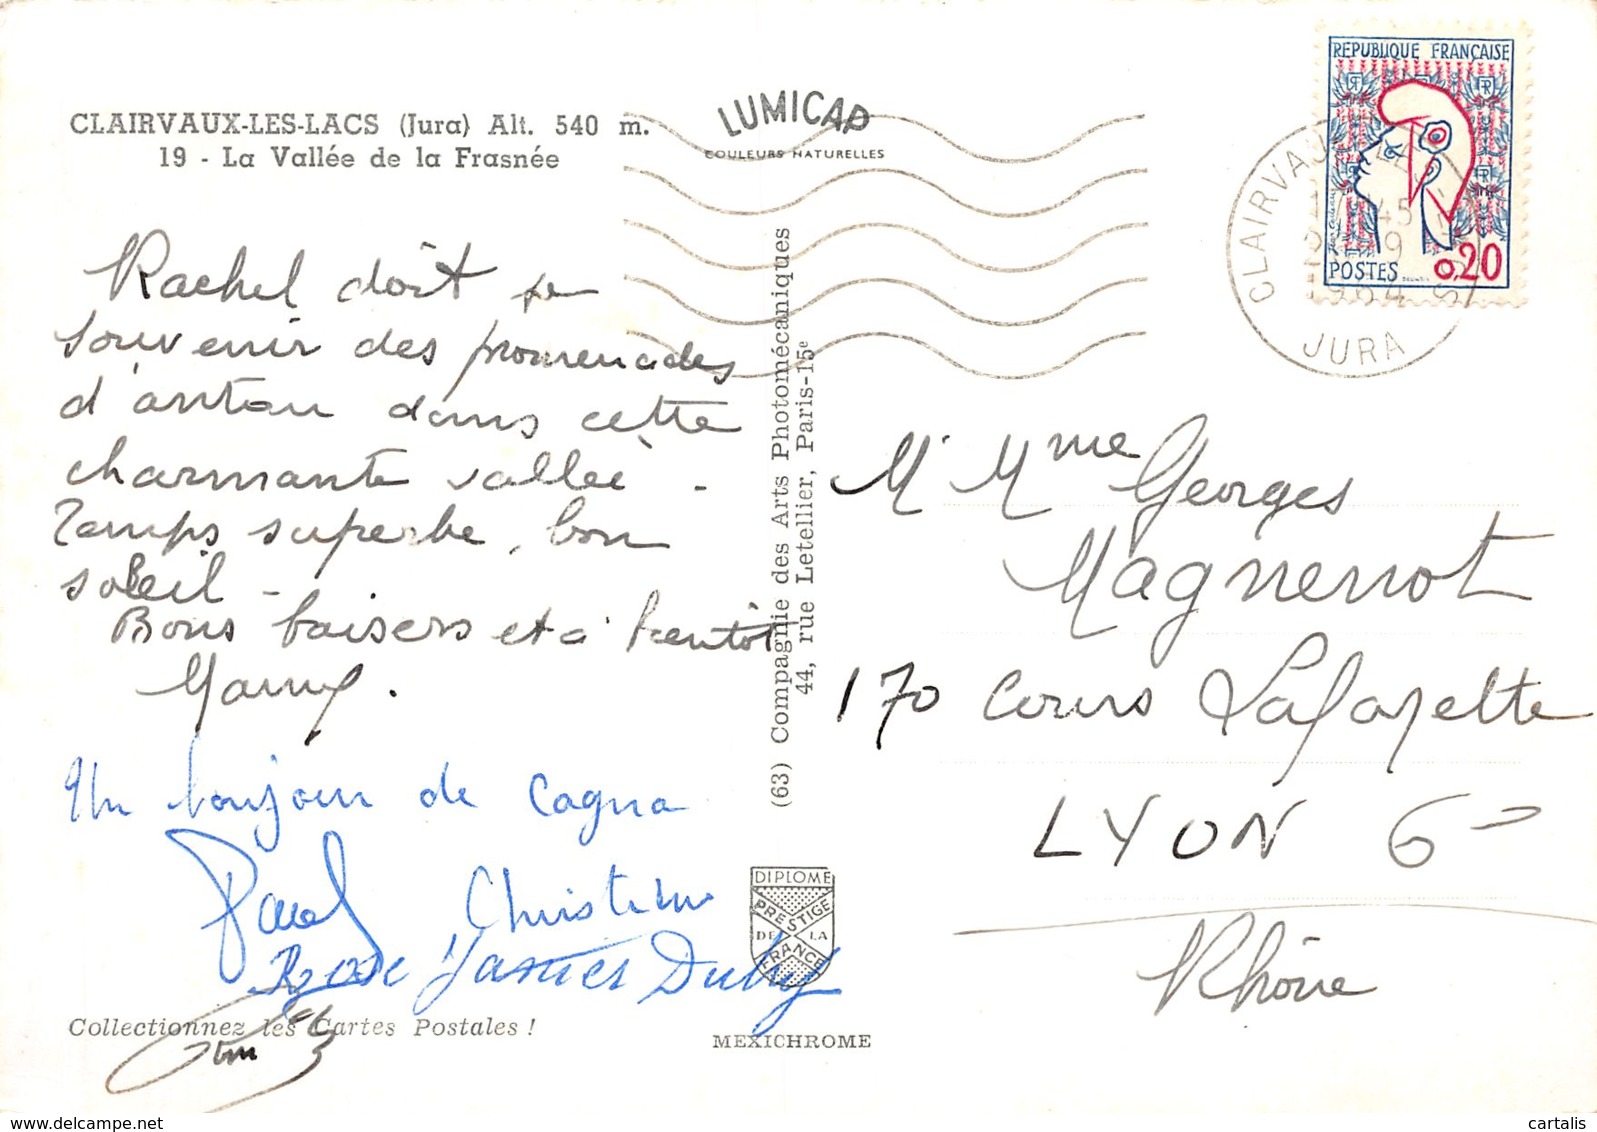 CLAIRVAUX-LES-LACS (Jura) Alt. 540 m.
19 - La Vallée de la Frasnée
LUMICAP
COULEURS NATURELLES
REPUBLIQUE FRANÇAISE
POSTES 0,20
CLAIRVAUX LES LACS
1964
JURA
Rachel doit se
souvenir des promenades
d'antan dans cette
charmante vallée -
Temps superbe, bon
soleil -
Bons baisers et à bientôt
Un bonjour de Cagna
Paul Christiane
Rose James Duby
(63) Compagnie des Arts Photomécaniques
44, rue Letellier, Paris-15e
M Mme Georges
Magnenot
170 Cours Lafayette
LYON 6
Rhône
DIPLOME
PRESTIGE
DE LA
FRANCE
Collectionnez les Cartes Postales !
MEXICHROME
cartalis